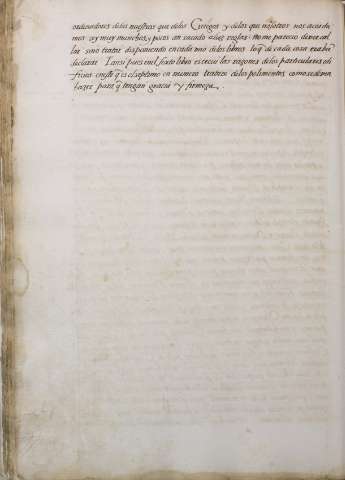 ordinadores delos nuestros que delos Griegos y delos que nosotros nos acorda
mos ay muy munchos, y pocos an sacado a luz reglas: no me parecio dever cal
lar sino tratar disponiendo en cada uno delos libros lo q̃ de cada cosa se avia
declarar I ansi pues en l sexto libro escrevi las razones delos particulares edi
ficios en este q̃ es el septimo en numero tratare delos polimentos como se deven
hazer para q̃ tengan gracia y firmeza.